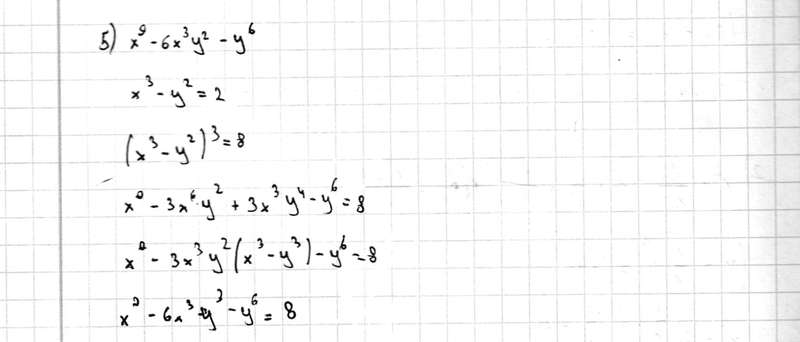 5) x⁹ - 6x³y² - y⁶
x³ - y² = 2
(x³ - y²)³ = 8
x⁹ - 3x⁶y² + 3x³y⁴ - y⁶ = 8
x⁹ - 3x³y²(x³ - y³) - y⁶ = 8
x⁹ - 6x³y³ - y⁶ = 8